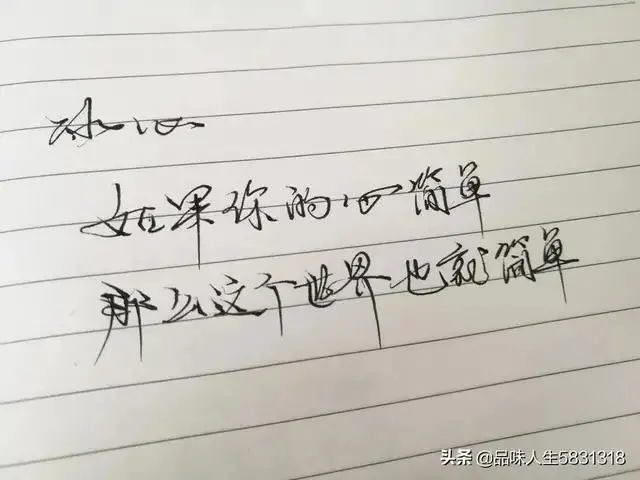 冰心
如果你的心简单
那么这个世界也就简单
头条 @品味人生5831318